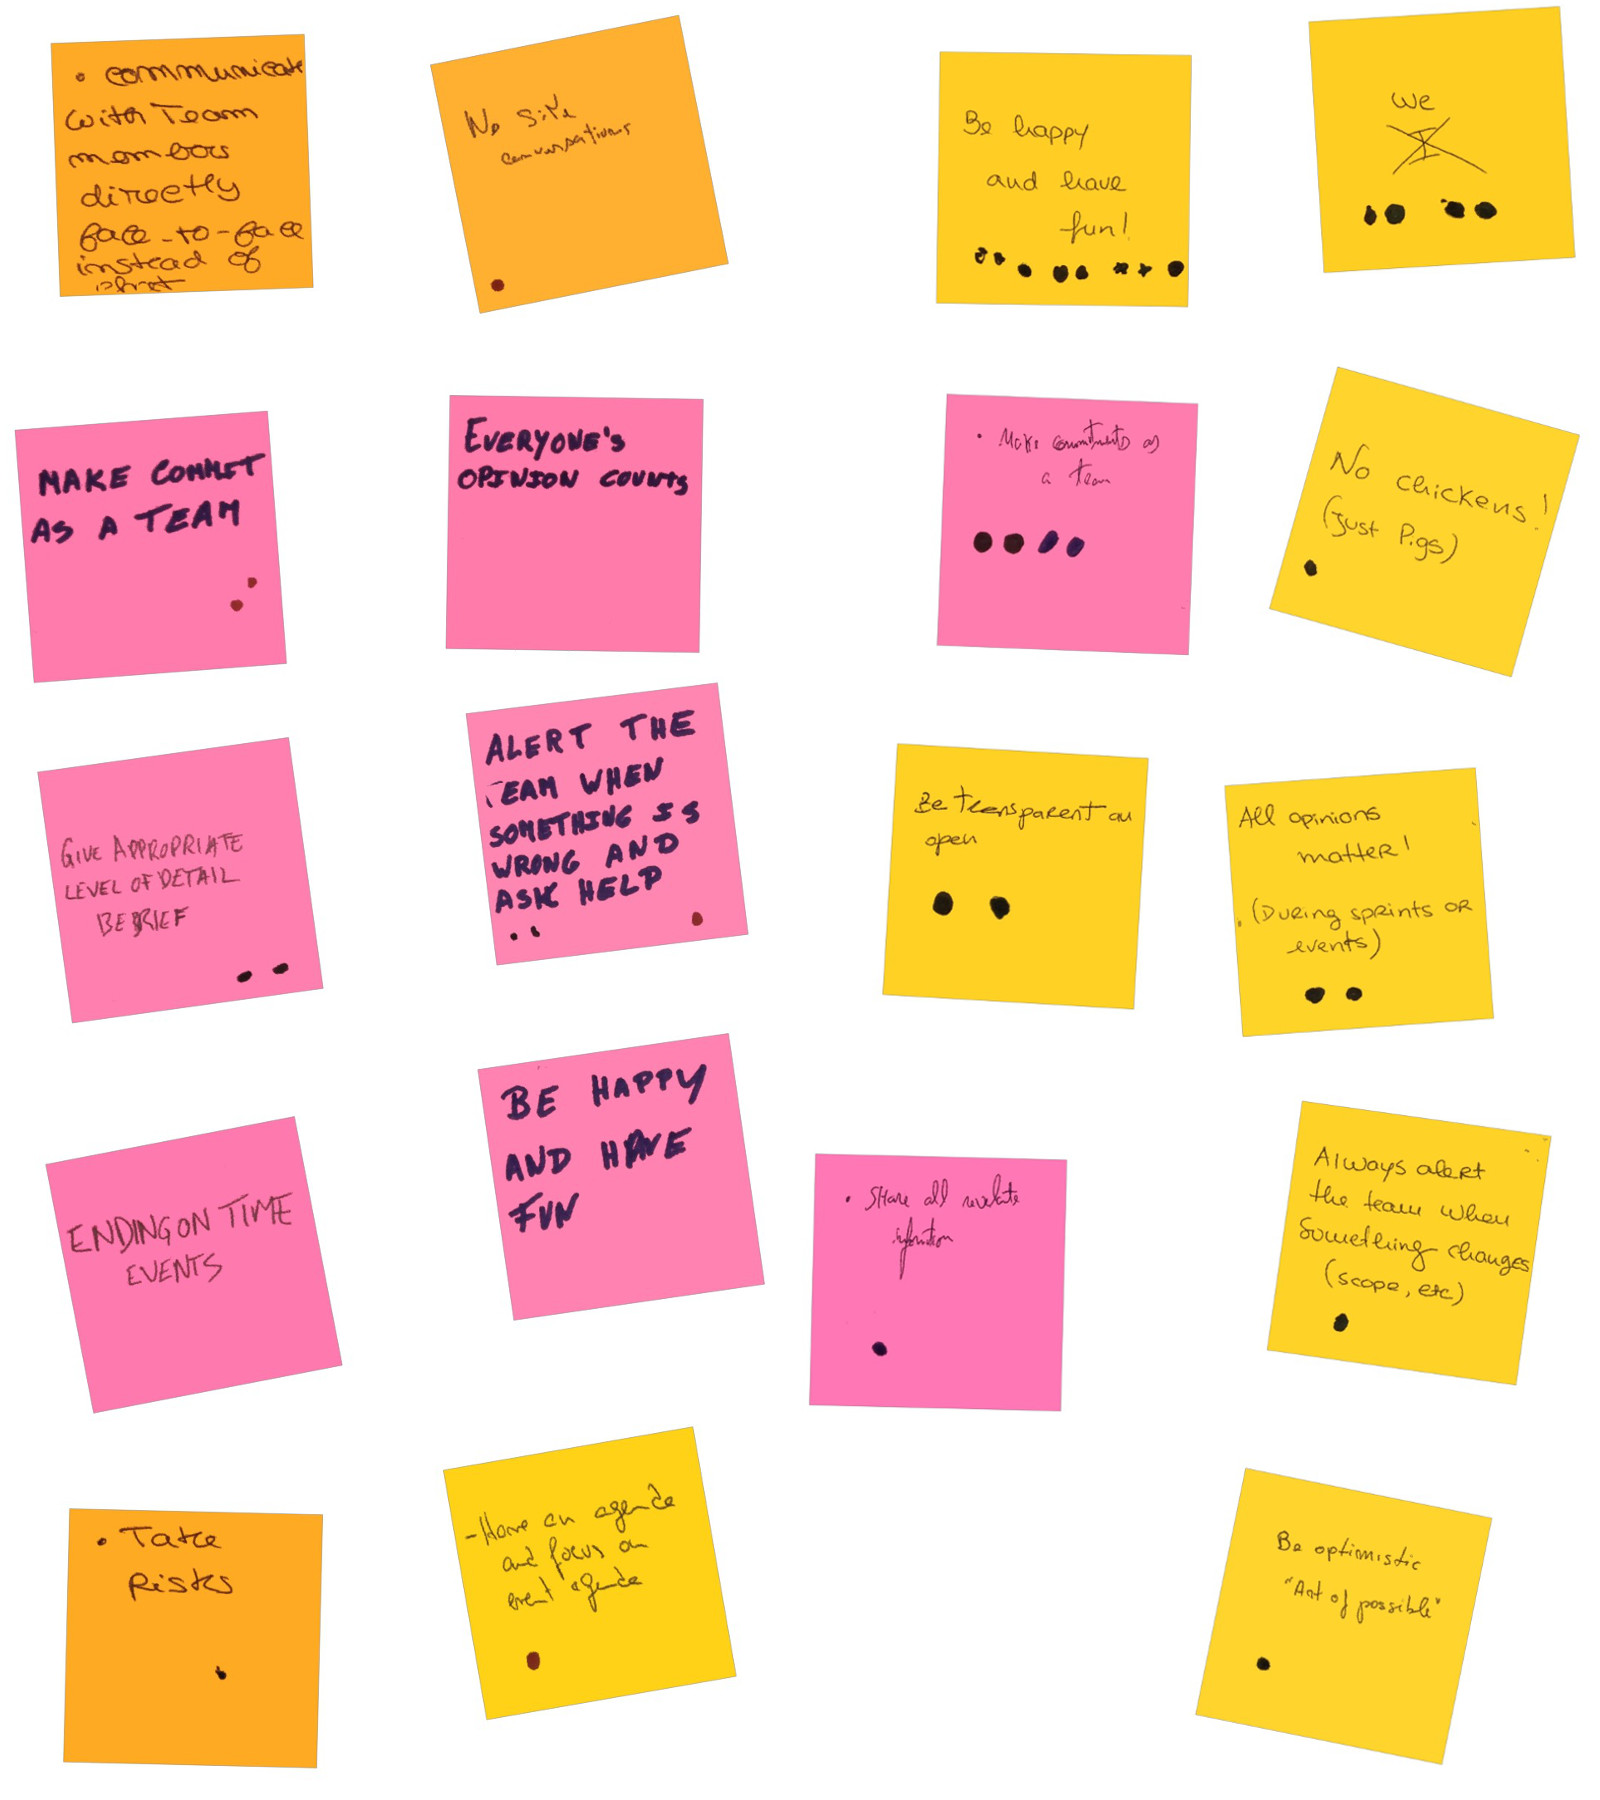 • communicate
with Team
members
directly
face-to-face
instead of
No Site
conversations
Be happy
and have
fun!
We
I
MAKE COMMIT
AS A TEAM
EVERYONE'S
OPINION COUNTS
• Make commitments as
a team
No chickens!
(Just Pigs)
GIVE APPROPRIATE
LEVEL OF DETAIL
BE BRIEF
ALERT THE
TEAM WHEN
SOMETHING IS
WRONG AND
ASK HELP
Be transparent an
open
All opinions
matter!
(During sprints or
events)
ENDING ON TIME
EVENTS
BE HAPPY
AND HAVE
FUN
• Share all
information
Always alert
the team when
Something changes
(scope, etc)
• Take
Risks
- Have an agenda
and focus on
event agenda
Be optimistic
"Art of possible"